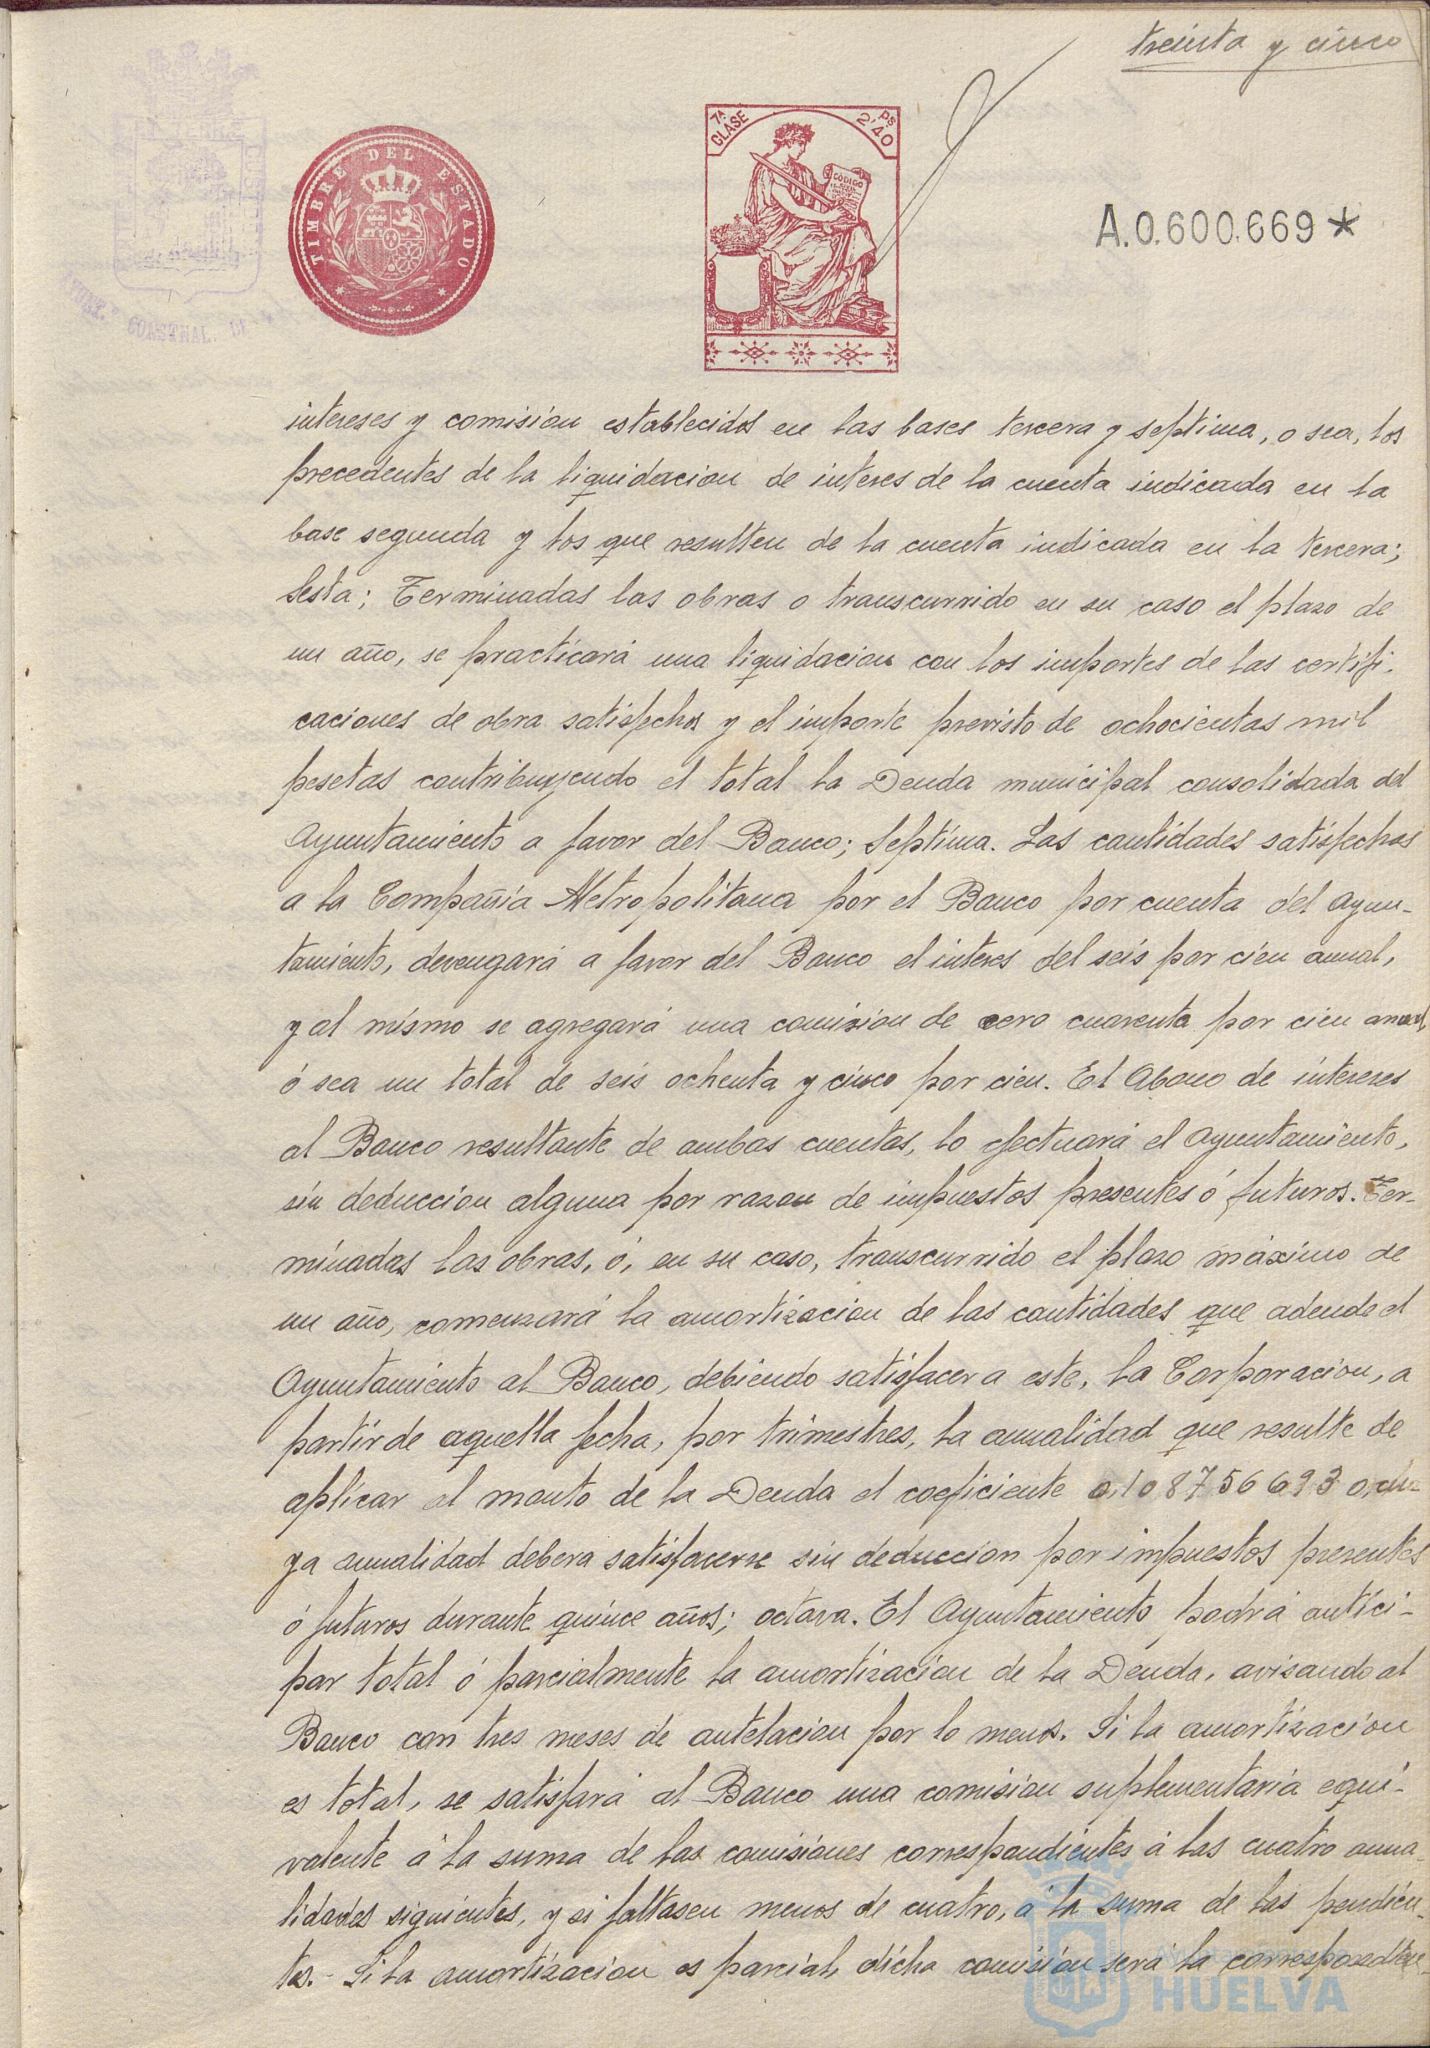 treinta y cinco
TIMBRE DEL ESTADO
7ª CLASE
Ps 2'40
CODIGO
A.0.600.669*
CONSTNAL.
intereses y comision establecidos en las bases tercera y septima, o sea, los
precedentes de la liquidacion de interes de la cuenta indicada en la
base segunda y los que resulten de la cuenta indicada en la tercera;
Sesta; Terminadas las obras o transcurrido en su caso el plazo de
un año, se practicará una liquidacion con los importes de las certifi-
caciones de obra satisfechos y el importe previsto de ochocientas mil
pesetas contribuyendo el total la Deuda municipal consolidada del
Ayuntamiento a favor del Banco; Septima. Las cantidades satisfechas
a la Compañia Metropolitana por el Banco por cuenta del Ayun-
tamiento, devengará a favor del Banco el interes del seis por cien anual,
y al mismo se agregará una comision de cero cuarenta por cien anual,
ó sea un total de seis ochenta y cinco por cien. El Abono de intereses
al Banco resultante de ambas cuentas, lo efectuará el Ayuntamiento,
sin deduccion alguna por razon de impuestos presentes ó futuros. Ter-
minadas las obras, ó, en su caso, transcurrido el plazo máximo de
un año, comenzará la amortizacion de las cantidades que adeude el
Ayuntamiento al Banco, debiendo satisfacer a este, la Corporacion, a
partir de aquella fecha, por trimestres, la anualidad que resulte de
aplicar al monto de la Deuda el coeficiente 0,1087566930, cu-
ya anualidad debera satisfacerse sin deduccion por impuestos presentes
ó futuros durante quince años; octava. El Ayuntamiento podrá antici-
par total ó parcialmente la amortizacion de la Deuda, avisando al
Banco con tres meses de antelacion por lo menos. Si la amortizacion
es total, se satisfará al Banco una comision suplementaria equi-
valente á la suma de las comisiones correspondientes á las cuatro anua-
lidades siguientes, y si faltasen menos de cuatro, á la suma de las pendien-
tes. - Si la amortizacion es parcial, dicha comision será la correspondien-
HUELVA